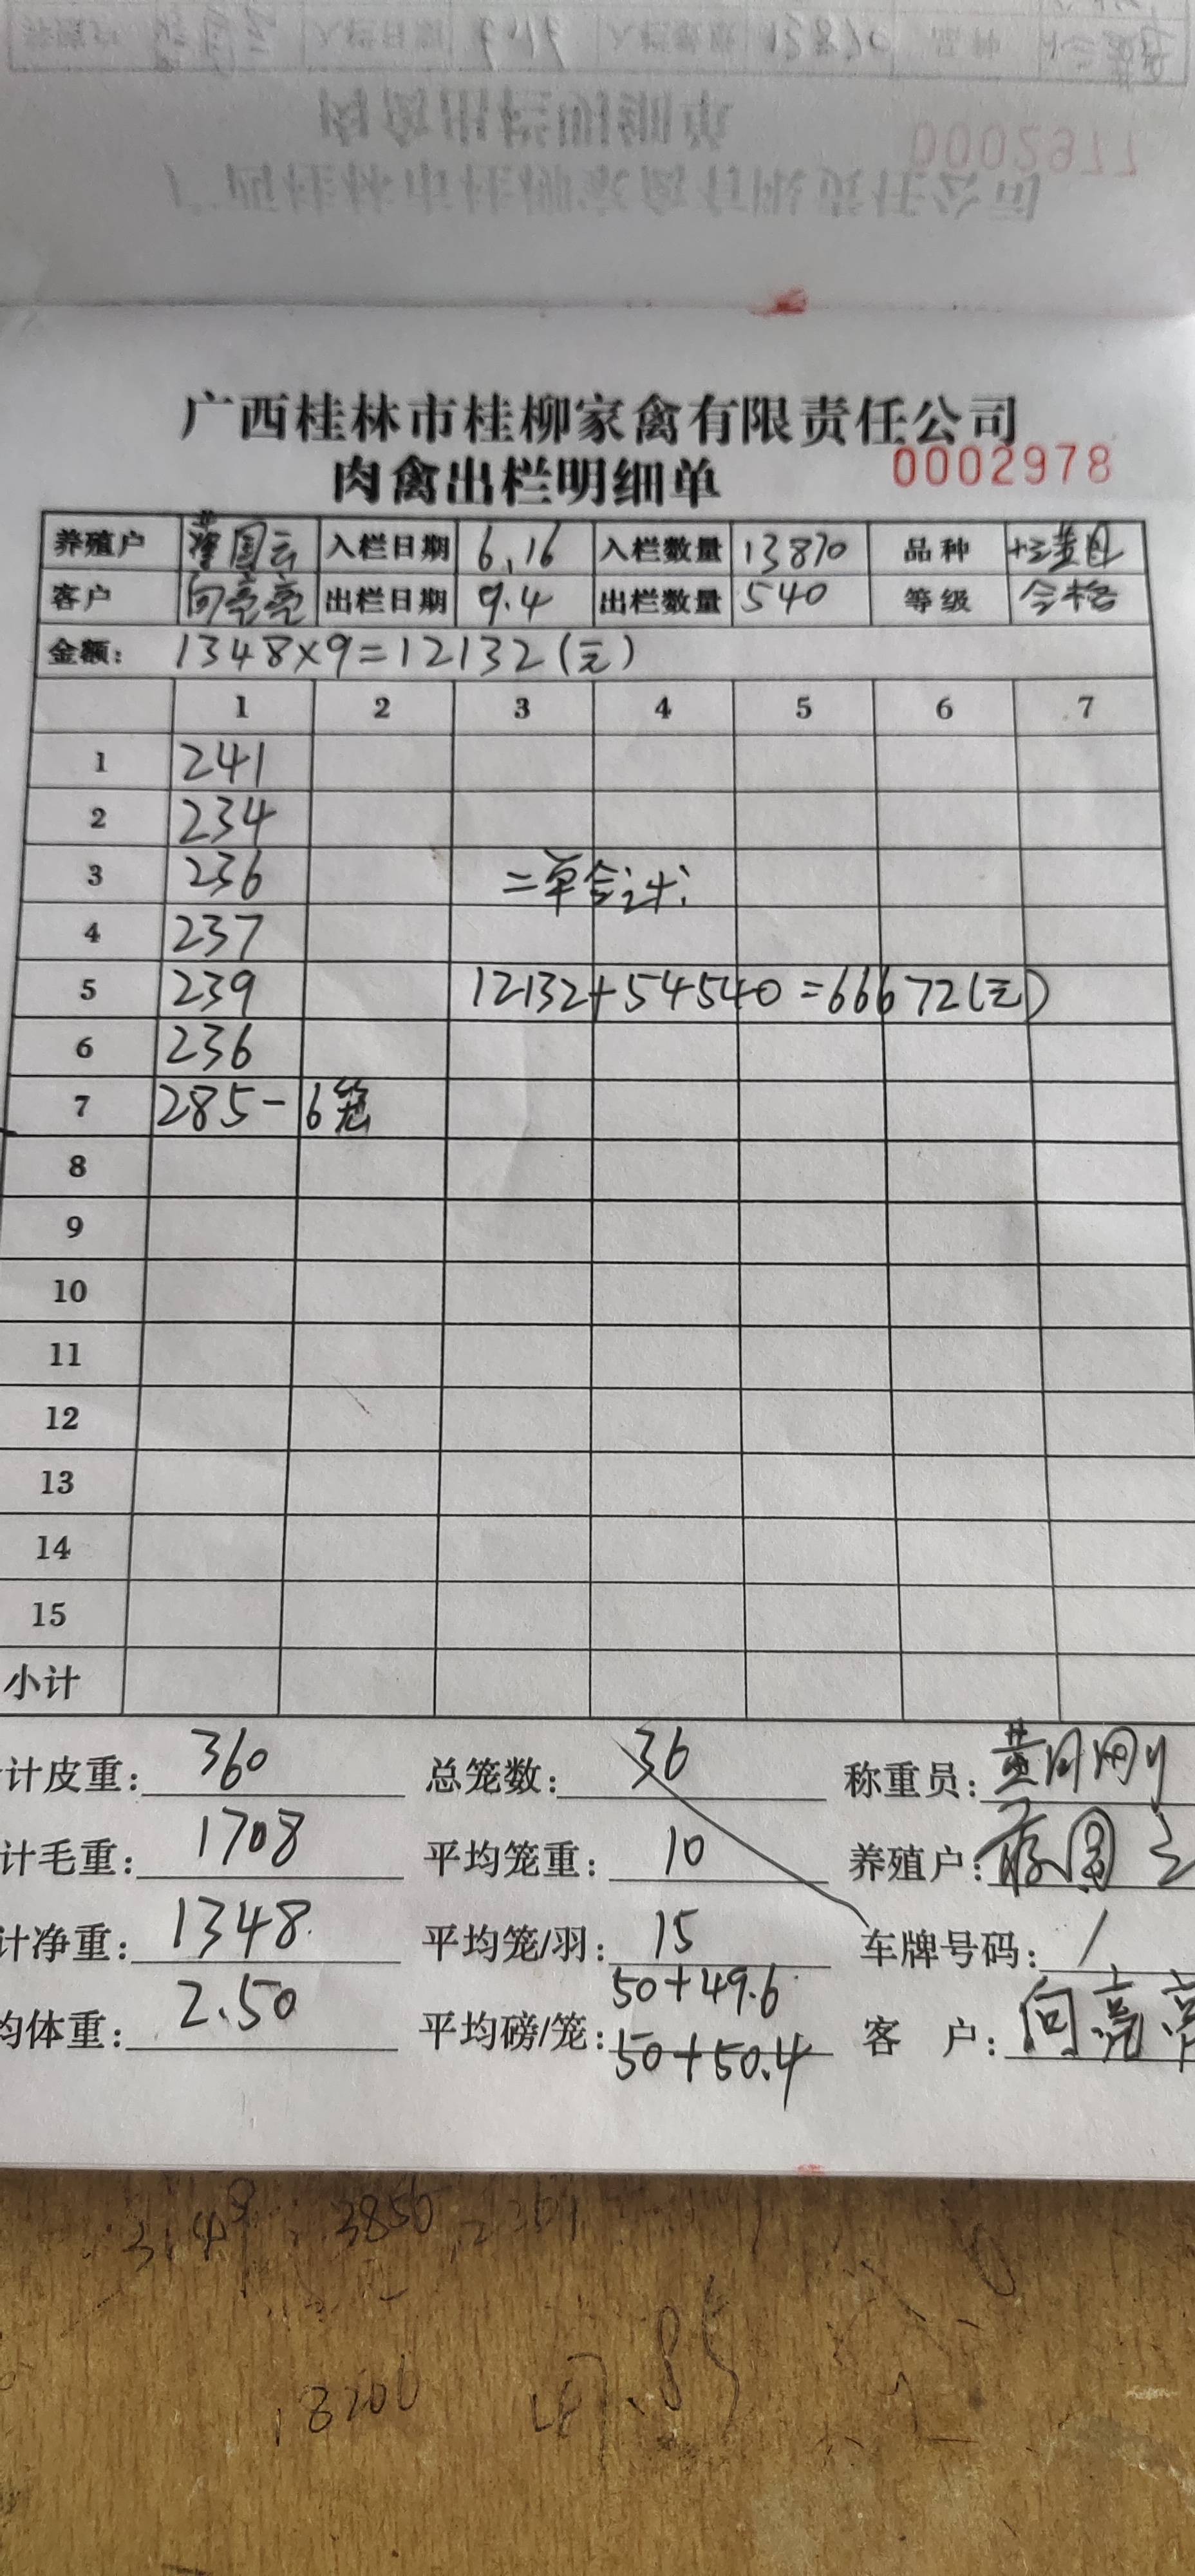 0002977
广西桂林市桂柳家禽有限责任公司
肉禽出栏明细单
0002978
养殖户 国云 入栏日期 6.16 入栏数量 13870 品种
客户 向亮亮 出栏日期 9.4 出栏数量 540 等级 合格
金额: 1348×9=12132(元)
1 2 3 4 5 6 7
1 241
2 234
3 236 二单合计:
4 237
5 239 12132+54540=66672(元)
6 236
7 285-6笼
8
9
10
11
12
13
14
15
小计
计皮重: 360 总笼数: 36 称重员: 黄月刚
计毛重: 1708 平均笼重: 10 养殖户:
计净重: 1348 平均笼/羽: 15 车牌号码: /
均体重: 2.50 平均磅/笼: 50+49.6 50+50.4 客 户: 向亮亮